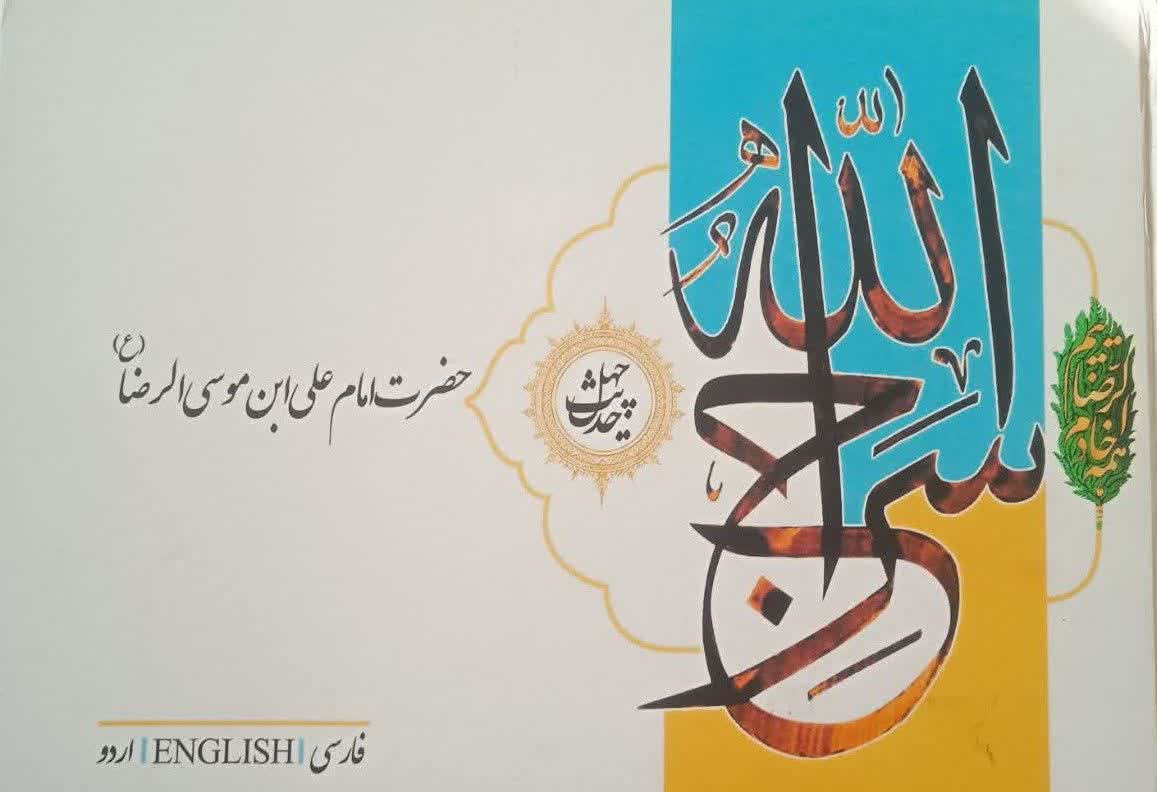 الله
همه خادم الرضاییم
چهل حدیث
حضرت امام علی ابن موسی الرضا (ع)
فارسی | ENGLISH | اردو